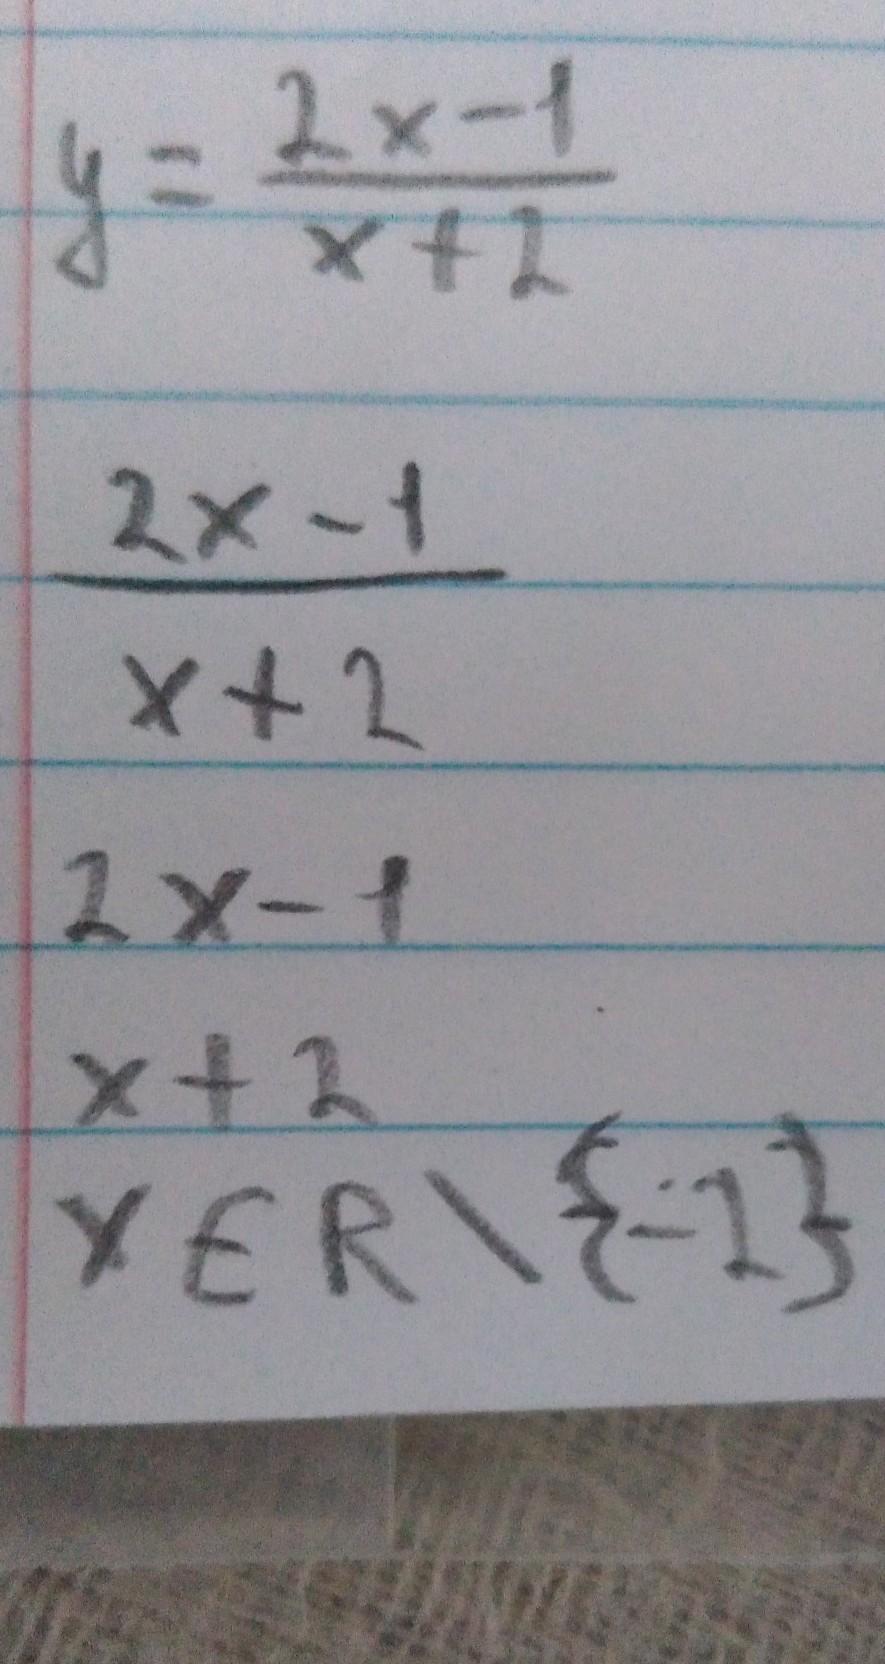 y = \frac{2x-1}{x+2}
\frac{2x-1}{x+2}
2x-1
x+2
x∈R\{-2}